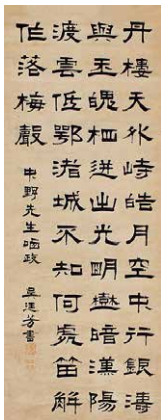 丹樓天外峙皓月空中行銀濤
與玉魄相迸出光明樹暗漢陽
渡雲低鄂渚城不知何處笛解
作落梅聲
中野先生哂政
吳芳書